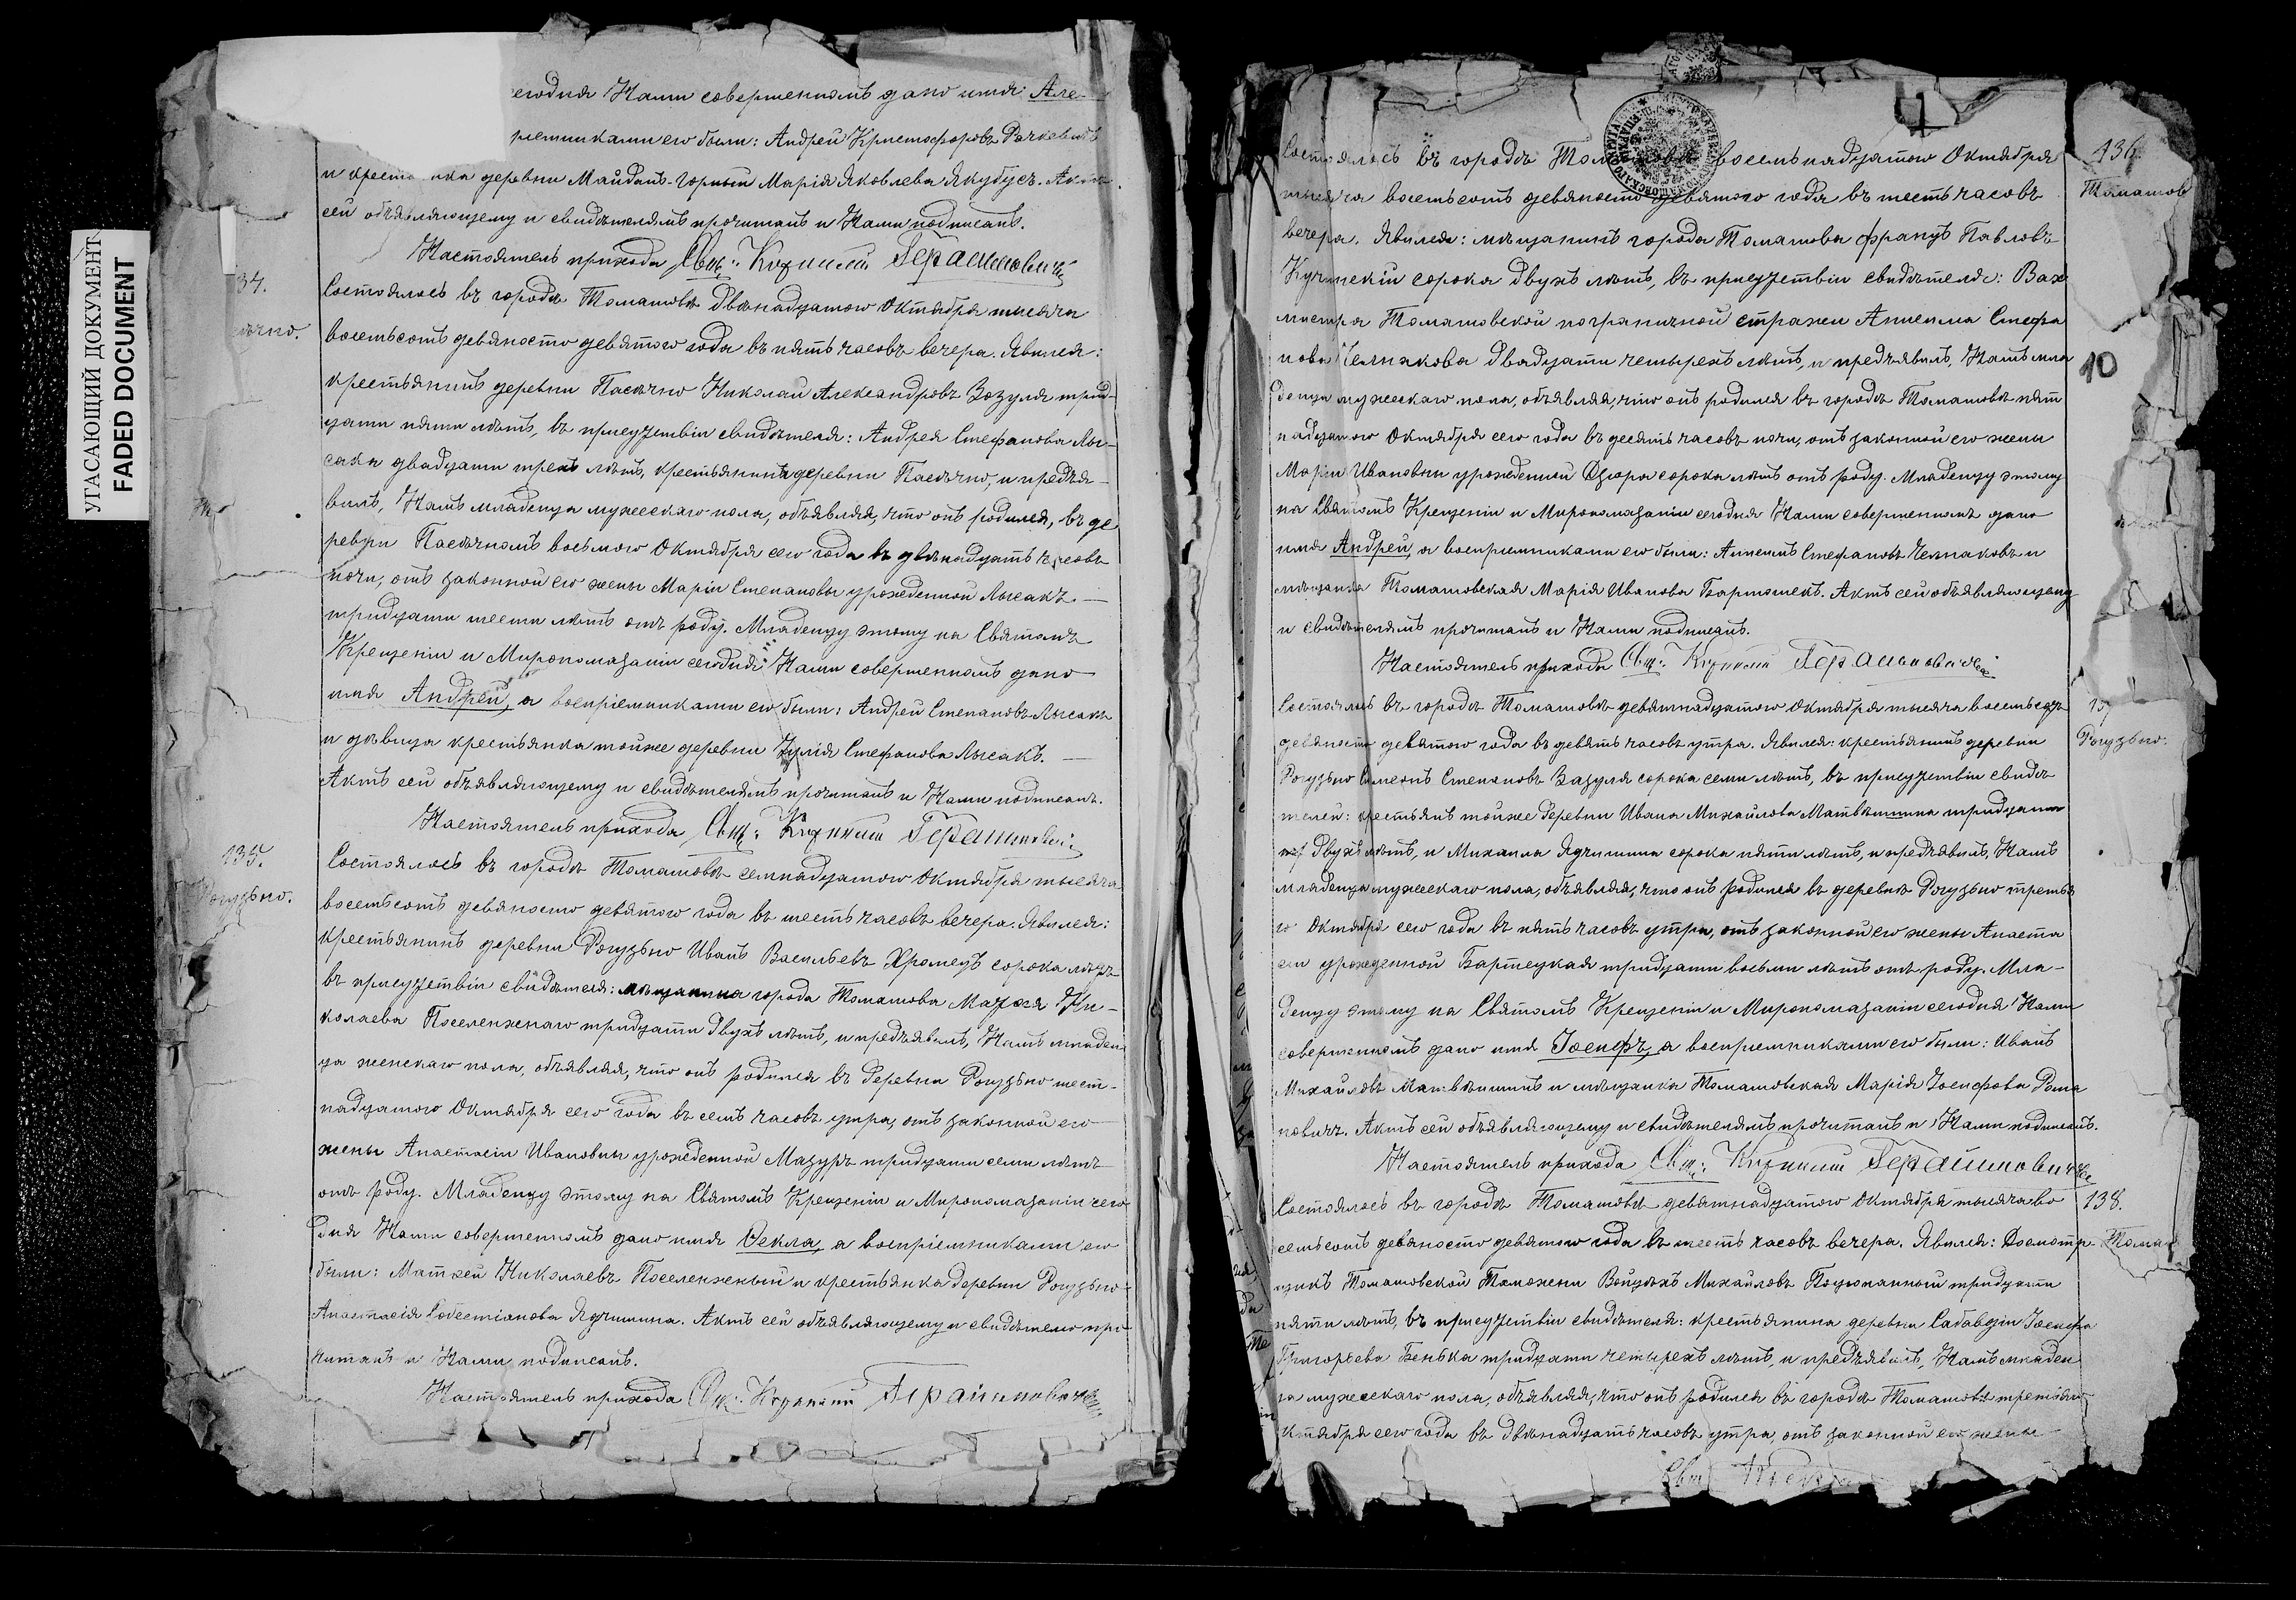 УГАСАЮЩИЙ ДОКУМЕНТ
FADED DOCUMENT
Нами совершенномъ дано имя Але-
его были: Андрей Христофоровъ
и деревни Майданъ-Горный Марія Яковлева Якубусъ. Актъ
сей объявляющему и свидѣтелямъ прочитанъ и Нами подписанъ.
Настоятель прихода Свщ:
34.
Состоялось въ городѣ Томашовѣ двѣнадцатого Октября тысяча
восемьсотъ девяносто девятого года въ пять часовъ вечера. Явился:
крестьянинъ деревни Пасѣчно Николай Александровъ Возуля трид-
цати пяти лѣтъ, въ присутствіи свидѣтеля: Андрея Стефанова Лы-
сака двадцати трехъ лѣтъ, крестьянина деревни Пасѣчно, и предъя-
вилъ, Намъ младенца мужескаго пола, объявляя, что онъ родился, въ де
ревни Пасѣчномъ восьмого Октября сего года въ двѣнадцать часовъ
ночи, отъ законной его жены Маріи Степановы урожденной Лысакъ
тридцати шести лѣтъ отъ роду. Младенцу этому на Святомъ
Крещеніи и Миропомазаніи сегодня Нами совершенномъ дано
имя Андрей, а воспріемниками его были: Андрей Степановъ Лысакъ
и дѣвица крестьянка тойже деревни Юлія Стефанова Лысакъ.
Актъ сей объявляющему и свидѣтелямъ прочитанъ и Нами подписанъ.
Настоятель прихода Свщ:
135.
Рогузьно.
Состоялось въ городѣ Томашовѣ семнадцатого Октября тысяча
восемьсотъ девяносто девятого года въ шесть часовъ вечера. Явился:
крестьянинъ деревни Рогузьно Иванъ Васильевъ Хромецъ сорока лѣтъ
въ присутствіи свидѣтеля: мѣщанина города Томашова Матѳея Ни-
колаева Поселенжнаго тридцати двухъ лѣтъ, и предъявилъ, Намъ младен
ца женскаго пола, объявляя, что онъ родился въ деревни Рогузьно шест-
надцатого Октября сего года въ семь часовъ утра, отъ законной его
жены Анастасіи Ивановны урожденной Мазуръ тридцати семи лѣтъ
отъ роду. Младенцу этому на Святомъ Крещеніи и Миропомазаніи сего
дня Нами совершенномъ дано имя Ѳекла, а воспріемниками его
были: Матѳей Николаевъ Поселенжный и крестьянка деревни Рогузьно
Анастасія Ядчишина. Актъ сей объявляющему и свидѣтелю про
читанъ и Нами подписанъ.
Настоятель прихода Свщ:
136
Томашов
10
Состоялось въ городѣ восемьнадцатого Октября
тысяча восемьсотъ девяносто девятого года въ шесть часовъ
вечера. Явился: мѣщанинъ города Томашова Францъ Павловъ
Кучинскій сорока двухъ лѣтъ, въ присутствіи свидѣтеля: Вах
мистра Томашовской пограничной стражи Анисима Стефа
нова Челнакова двадцати четырехъ лѣтъ, и предъявилъ, Намъ мла
денца мужескаго пола, объявляя, что онъ родился въ городѣ Томашовѣ пят
надцатого Октября сего года въ десять часовъ ночи, отъ законной его жены
Маріи Ивановны урожденной Дзюра сорока лѣтъ отъ роду. Младенцу этому
на Святомъ Крещеніи и Миропомазаніи сегодня Нами совершенномъ дано
имя Андрей, а воспріемниками его были: Анисимъ Стефановъ Челнаковъ и
мѣщанка Томашовская Марія Иванова Бартошекъ. Актъ сей объявляющему
и свидѣтелямъ прочитанъ и Нами подписанъ.
Настоятель прихода Свщ:
Рогузьно.
Состоялось въ городѣ Томашовѣ девятнадцатого Октября тысяча восемьсотъ
девяносто девятого года въ девять часовъ утра. Явился: крестьянинъ деревни
Рогузьно Симеонъ Степановъ Вазуля сорока семи лѣтъ, въ присутствіи свидѣ
телей: крестьянъ тойже деревни Ивана Михайлова Матвѣишина тридцати
двухъ лѣтъ, и Михаила Ядчишина сорока пяти лѣтъ, и предъявилъ, Намъ
младенца мужескаго пола, объявляя, что онъ родился въ деревнѣ Рогузьно третья
го Октября сего года въ пять часовъ утра, отъ законной его жены Анаста
сіи урожденной Бартецкая тридцати восьми лѣтъ отъ роду. Мла-
денцу этому на Святомъ Крещеніи и Миропомазаніи сегодня Нами
совершенномъ дано имя Іосифъ, а воспріемниками его были: Иванъ
Михайловъ Матвѣишинъ и мѣщанка Томашовская Марія Іосифова Рома
новичъ. Актъ сей объявляющему и свидѣтелямъ прочитанъ и Нами подписанъ.
Настоятель прихода Свщ:
138.
Томаш
Состоялось въ городѣ Томашовѣ девятнадцатого Октября тысяча во
семьсотъ девяносто девятого года въ шесть часовъ вечера. Явился: Досмотр-
щикъ Томашовской Таможни Войцѣхъ Михайловъ тридцати
пяти лѣтъ, въ присутствіи свидѣтеля: крестьянина деревни Сабавдзи Іосифа
Григорьева Бенька тридцати четырехъ лѣтъ, и предъявилъ, Намъ младен
ца мужескаго пола, объявляя, что онъ родился въ городѣ Томашовѣ третьяго
ктября сего года въ двѣнадцать часовъ утра, отъ законной его жены